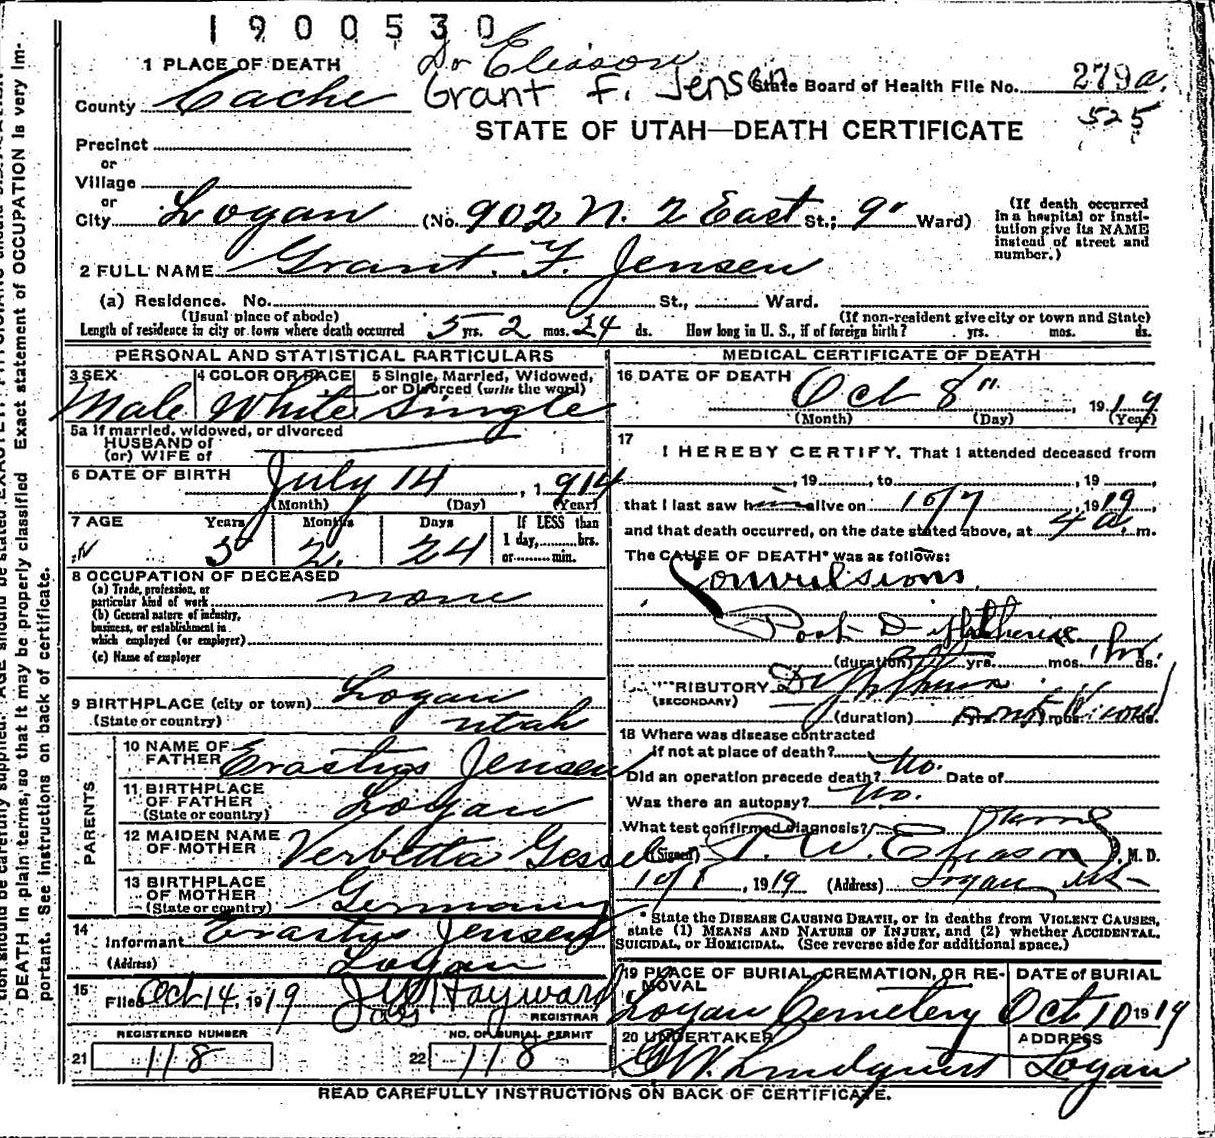 1900530
Dr Eliason
1 PLACE OF DEATH
Grant F. Jensen
State Board of Health File No. 279a
County Cache
525
STATE OF UTAH—DEATH CERTIFICATE
Precinct
or
Village
or
City Logan (No. 902 N. 2 East St.; 9" Ward)
(If death occurred in a hospital or institution give its NAME instead of street and number.)
2 FULL NAME Grant. F. Jensen
(a) Residence. No. St., Ward.
(Usual place of abode) (If non-resident give city or town and State)
Length of residence in city or town where death occurred 5 yrs. 2 mos. 24 ds. How long in U. S., if of foreign birth? yrs. mos. ds.
PERSONAL AND STATISTICAL PARTICULARS
3 SEX Male
4 COLOR OR RACE White
5 Single, Married, Widowed, or Divorced (write the word) Single
5a If married, widowed, or divorced
HUSBAND of
(or) WIFE of
6 DATE OF BIRTH July 14, 1914
(Month) (Day) (Year)
7 AGE Years Months Days If LESS than
5 2 24 1 day, hrs.
or min.
8 OCCUPATION OF DECEASED
(a) Trade, profession, or particular kind of work none
(b) General nature of industry, business, or establishment in which employed (or employer)
(c) Name of employer
9 BIRTHPLACE (city or town) Logan
(State or country) Utah
PARENTS
10 NAME OF FATHER Erastus Jensen
11 BIRTHPLACE OF FATHER Logan
(State or country)
12 MAIDEN NAME OF MOTHER Verbetta Gessel
13 BIRTHPLACE OF MOTHER Germany
(State or country)
14 Informant Erastus Jensen
(Address) Logan
15 Filed Oct 14, 1919 Hayward
REGISTRAR
REGISTERED NUMBER
21 118
NO. OF BURIAL PERMIT
22 118
MEDICAL CERTIFICATE OF DEATH
16 DATE OF DEATH Oct 8", 1919
(Month) (Day) (Year)
17 I HEREBY CERTIFY. That I attended deceased from
, 19 , to , 19 ,
that I last saw him alive on 10/7, 1919
and that death occurred, on the date stated above, at 4 a m.
The CAUSE OF DEATH* was as follows:
Convulsions
Post Diphtheria
(duration) yrs. mos. ds.
TRIBUTORY Diphtheria
(SECONDARY)
(duration)
18 Where was disease contracted
if not at place of death?
Did an operation precede death? No. Date of
Was there an autopsy? No.
What test confirmed diagnosis?
(Signed) P. W. Eliason, M. D.
10/8, 1919 (Address) Logan Ut
* State the DISEASE CAUSING DEATH, or in deaths from VIOLENT CAUSES,
state (1) MEANS AND NATURE OF INJURY, and (2) whether ACCIDENTAL,
SUICIDAL, or HOMICIDAL. (See reverse side for additional space.)
19 PLACE OF BURIAL, CREMATION, OR REMOVAL Logan Cemetery
DATE of BURIAL Oct 10 1919
20 UNDERTAKER Lindquist
ADDRESS Logan
READ CAREFULLY INSTRUCTIONS ON BACK OF CERTIFICATE.
DEATH in plain terms, so that it may be properly classified Exact statement of OCCUPATION is very im-
portant. See instructions on back of certificate.